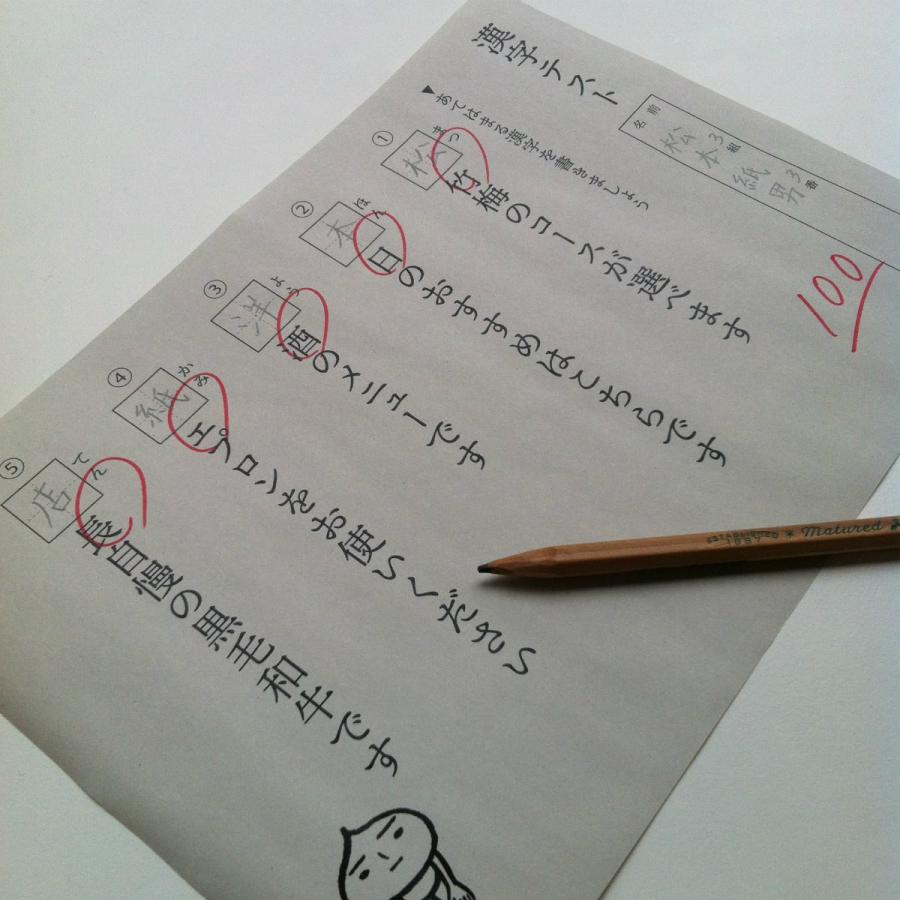 漢字テスト
名前
3組 3番
松本 紙男
100
▼あてはまる漢字を書きましょう
① 松 まつ 竹梅のコースが選べます
② 本 ほん 日のおすすめはこちらです
③ 洋 よう 酒のメニューです
④ 紙 かみ エプロンをお使いください
⑤ 店 てん 長自慢の黒毛和牛です
ESTABLISHED 1887 * Matured